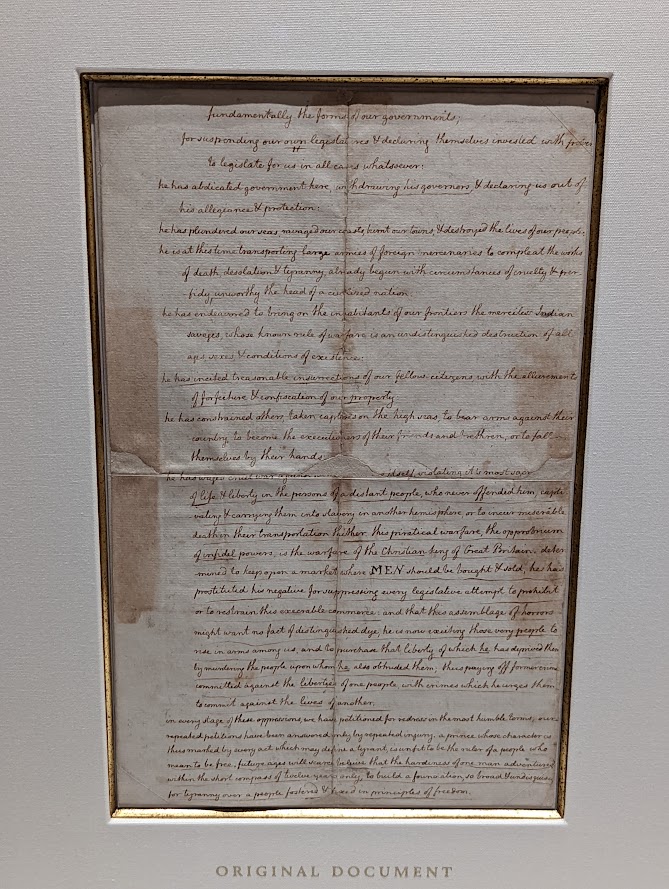 fundamentally the forms of our government;
for suspending our own legislatures & declaring themselves invested with power
to legislate for us in all cases whatsoever:
he has abdicated government here, withdrawing his governors, & declaring us out of
his allegiance & protection:
he has plundered our seas, ravaged our coasts, burnt our towns, & destroyed the lives of our people:
he is at this time transporting large armies of foreign mercenaries to compleat the works
of death, desolation & tyranny, already begun with circumstances of cruelty & per
fidy unworthy the head of a civilized nation:
he has endeavored to bring on the inhabitants of our frontiers the merciless Indian
savages, whose known rule of warfare is an undistinguished destruction of all
ages, sexes, & conditions of existence:
he has incited treasonable insurrections of our fellow-citizens, with the allurements
of forfeiture & confiscation of our property:
he has constrained others, taken captives on the high seas, to bear arms against their
country, to become the executioners of their friends and brethren, or to fall
themselves by their hands.
he has waged cruel war against itself, violating it's most
of life & liberty in the persons of a distant people, who never offended him, capti
vating & carrying them into slavery in another hemisphere or to incur miserable
death in their transportation thither. this piratical warfare, the opprobrium
of infidel powers, is the warfare of the Christian king of Great Britain. deter
mined to keep open a market where MEN should be bought & sold, he has
prostituted his negative for suppressing every legislative attempt to prohibit
or to restrain this execrable commerce: and that this assemblage of horrors
might want no fact of distinguished dye, he is now exciting those very people to
rise in arms among us, and to purchase that liberty of which he has deprived them
by murdering the people upon whom he also obtruded them; thus paying off former crimes
committed against the liberties of one people, with crimes which he urges them
to commit against the lives of another.
in every stage of these oppressions, we have petitioned for redress in the most humble terms; our
repeated petitions have been answered only by repeated injury. a prince whose character is
thus marked by every act which may define a tyrant, is unfit to be the ruler of a people who
mean to be free. future ages will scarce believe that the hardiness of one man adventured
within the short compass of twelve years only, to build a foundation, so broad & undisguised
for tyranny over a people fostered & fixed in principles of freedom.
ORIGINAL DOCUMENT